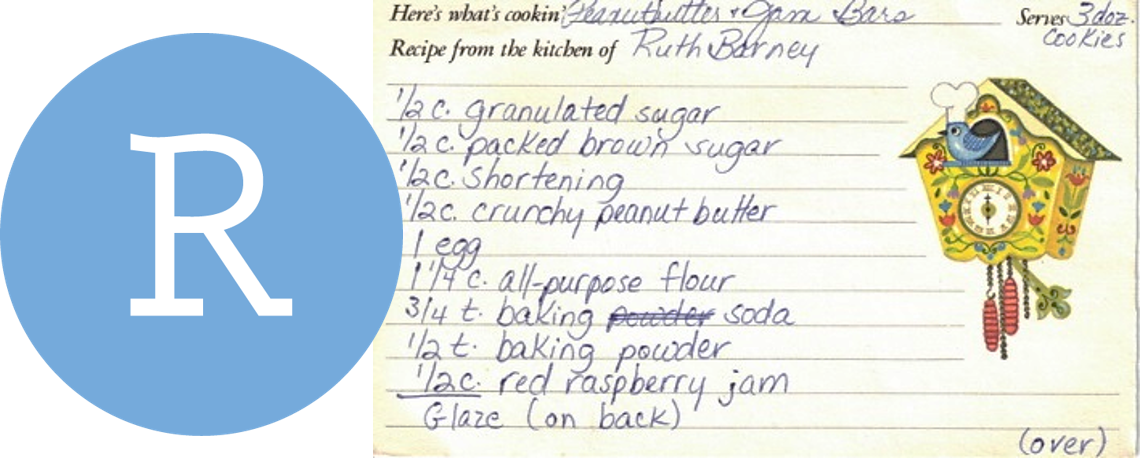 R
Here's what's cookin' Peanutbutter + Jam Bars Serves 3 doz.
Cookies
Recipe from the kitchen of Ruth Barney
1/2 c. granulated sugar
1/2 c. packed brown sugar
1/2 c. shortening
1/2 c. crunchy peanut butter
1 egg
1 1/4 c. all-purpose flour
3/4 t. baking powder soda
1/2 t. baking powder
1/2 c. red raspberry jam
Glaze (on back)
(over)